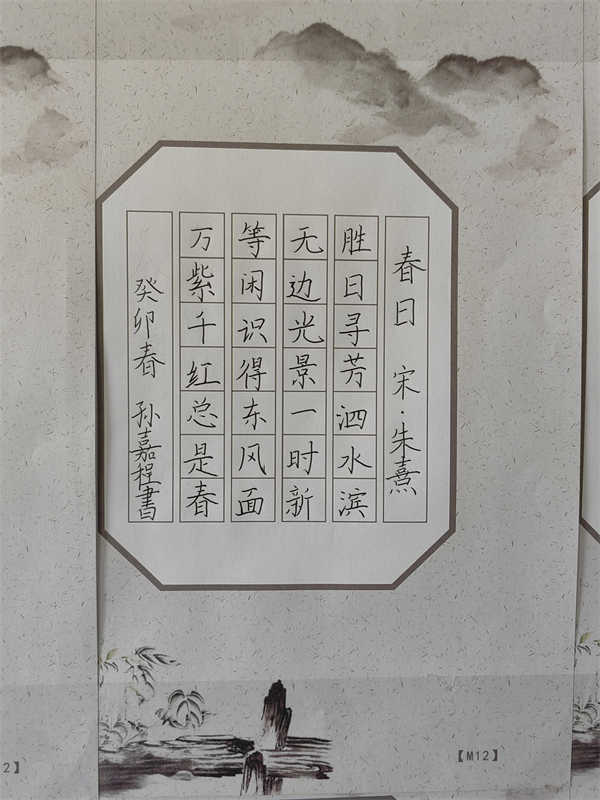 春日 宋·朱熹
胜日寻芳泗水滨
无边光景一时新
等闲识得东风面
万紫千红总是春
癸卯春 孙嘉程書
【M12】
2】